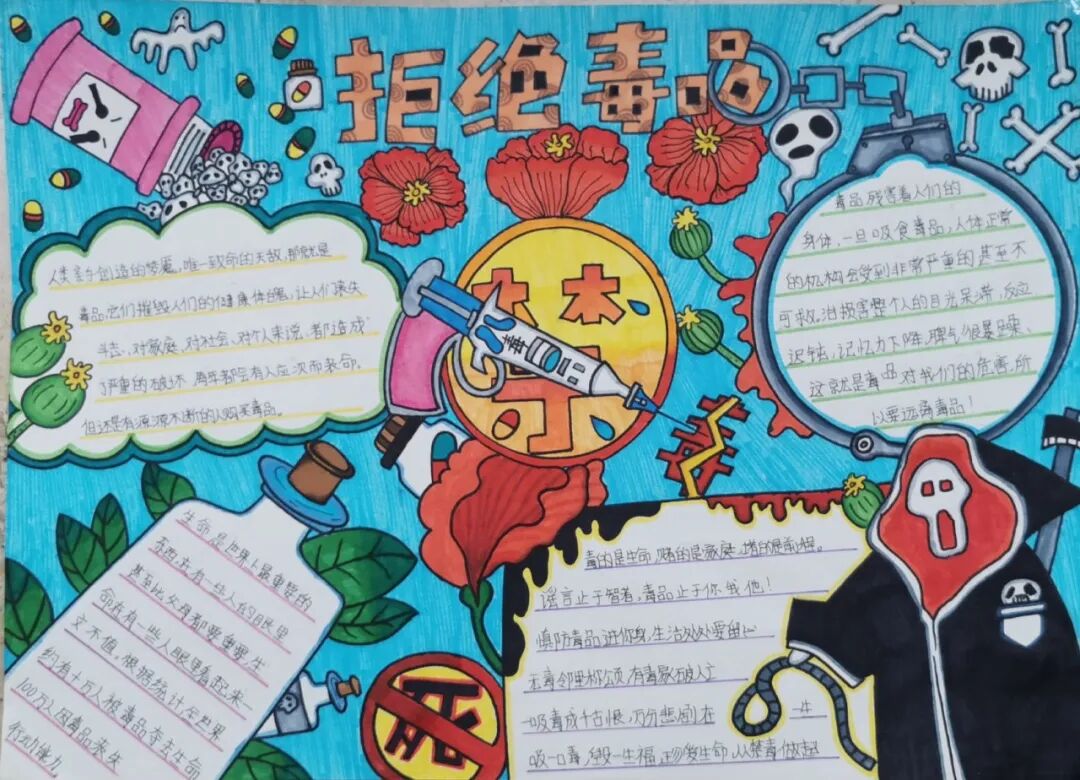 拒绝毒品
人类亲手创造的梦魇,唯一致命的天敌,那就是
毒品,它们摧毁人们的健康体魄,让人们丧失
斗志、对家庭、对社会、对个人来说、都造成
了严重的破坏 每年都会有人应次而丧命。
但还是有源源不断的人购买毒品。
毒品残害着人们的
身体,一旦吸食毒品,人体正常
的机构会受到非常严重的甚至不
可救治损害整个人的目光呆滞,反应
迟钝,记忆力下降,脾气很暴躁、
这就是毒品对我们的危害,所
以要远离毒品!
禁
毒
生命是世界上最重要的
东西,在有一些人的眼里
甚至比父母都要重要,生
命在有一些人眼里看起来一
文不值。根据统计全世界
约有十万人被毒品夺走生命
100万人因毒品丧失
行动能力
毒的是生命,赌的是家庭,堵的是前程。
谣言止于智者,毒品止于你我他!
慎防毒品进你身,生活处处要留心
无毒邻里称颂,有毒家破人亡
一吸毒成千古恨,万分悲剧在 一生
吸一口毒,毁一生福,珍爱生命,从禁毒做起
毒
死